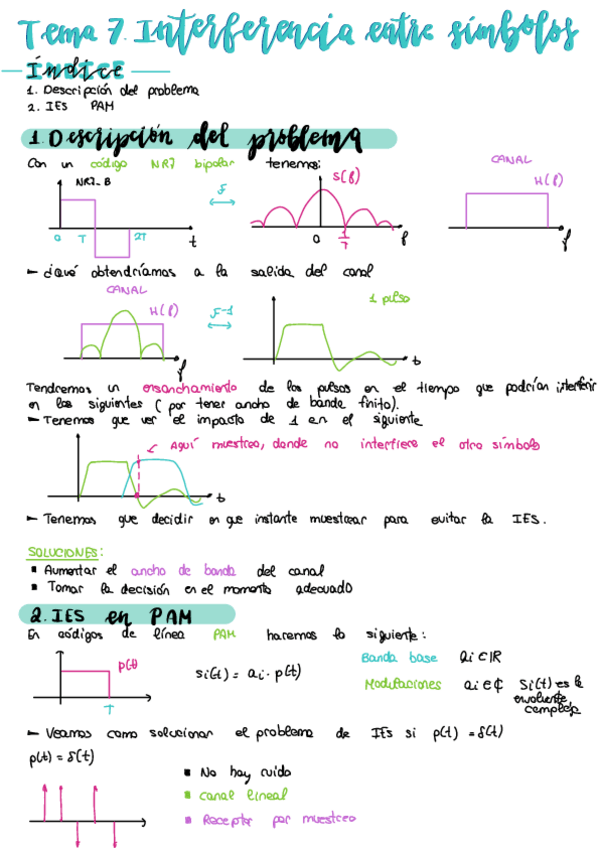 Tema 7. Interferencia entre símbolos
Índice
1. Descripción del problema
2. IES PAM
1. Descripción del problema
Con un código NRZ bipolar tenemos:
CANAL
NRZ_B
F
S(f)
H(f)
0 T 2T t
0 1/T f
f
- ¿Qué obtendríamos a la salida del canal
CANAL
H(f)
F-1
1 pulso
f
t
Tendremos un ensanchamiento de los pulsos en el tiempo que podrían interferir
en los siguientes (por tener ancho de banda finito).
- Tenemos que ver el impacto de 1 en el siguiente
Aquí muestreo, donde no interfiere el otro símbolo
t
- Tenemos que decidir en que instante muestrear para evitar la IES.
SOLUCIONES:
▪ Aumentar el ancho de banda del canal
▪ Tomar la decisión en el momento adecuado
2. IES en PAM
En códigos de línea PAM haremos lo siguiente:
p(t)
T
si(t) = ai · p(t)
Banda base ai ∈ ℝ
Modulaciones ai ∈ ℂ Si(t) es la
envolvente
compleja
- Veamos como solucionar el problema de IES si p(t) = δ(t)
p(t) = δ(t)
▪ No hay ruido
▪ Canal lineal
▪ Receptor por muestreo